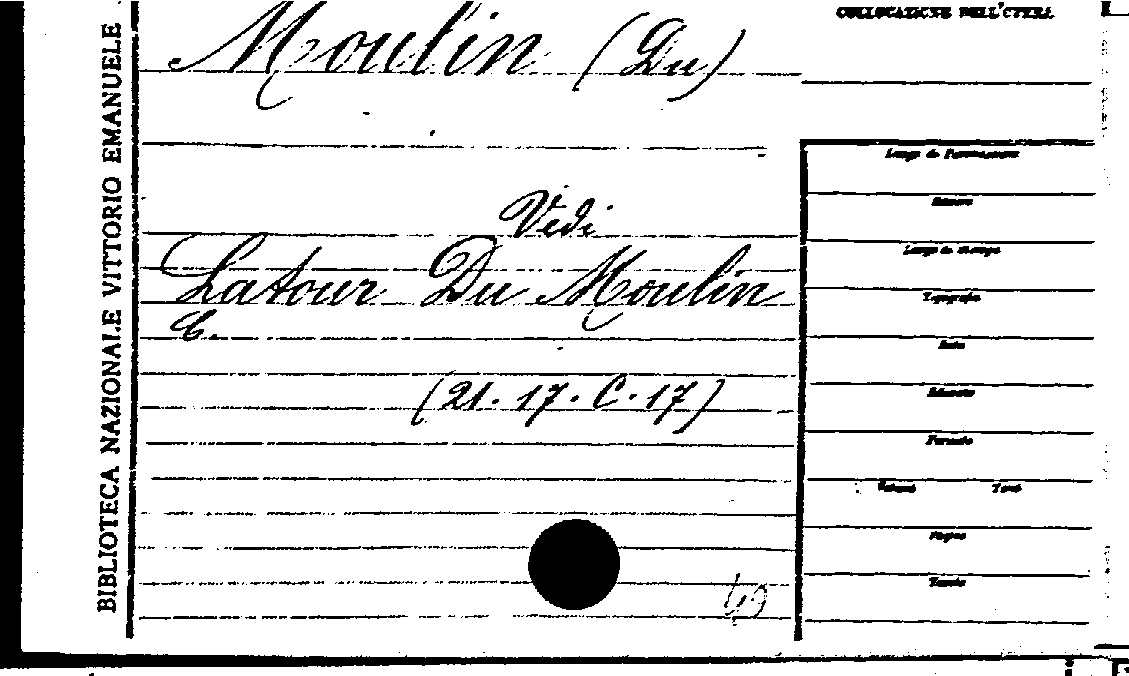 BIBLIOTECA NAZIONALE VITTORIO EMANUELE
Moulin (Du)
Vedi
Latour Du Moulin
C.
(21. 17. C. 17)
COLLOCAZIONE DELL'OPERA
Luogo di Pubblicazione
Editore
Luogo di stampa
Tipografia
Data
Edizione
Formato
Volumi Tomi
Pagine
Tavole